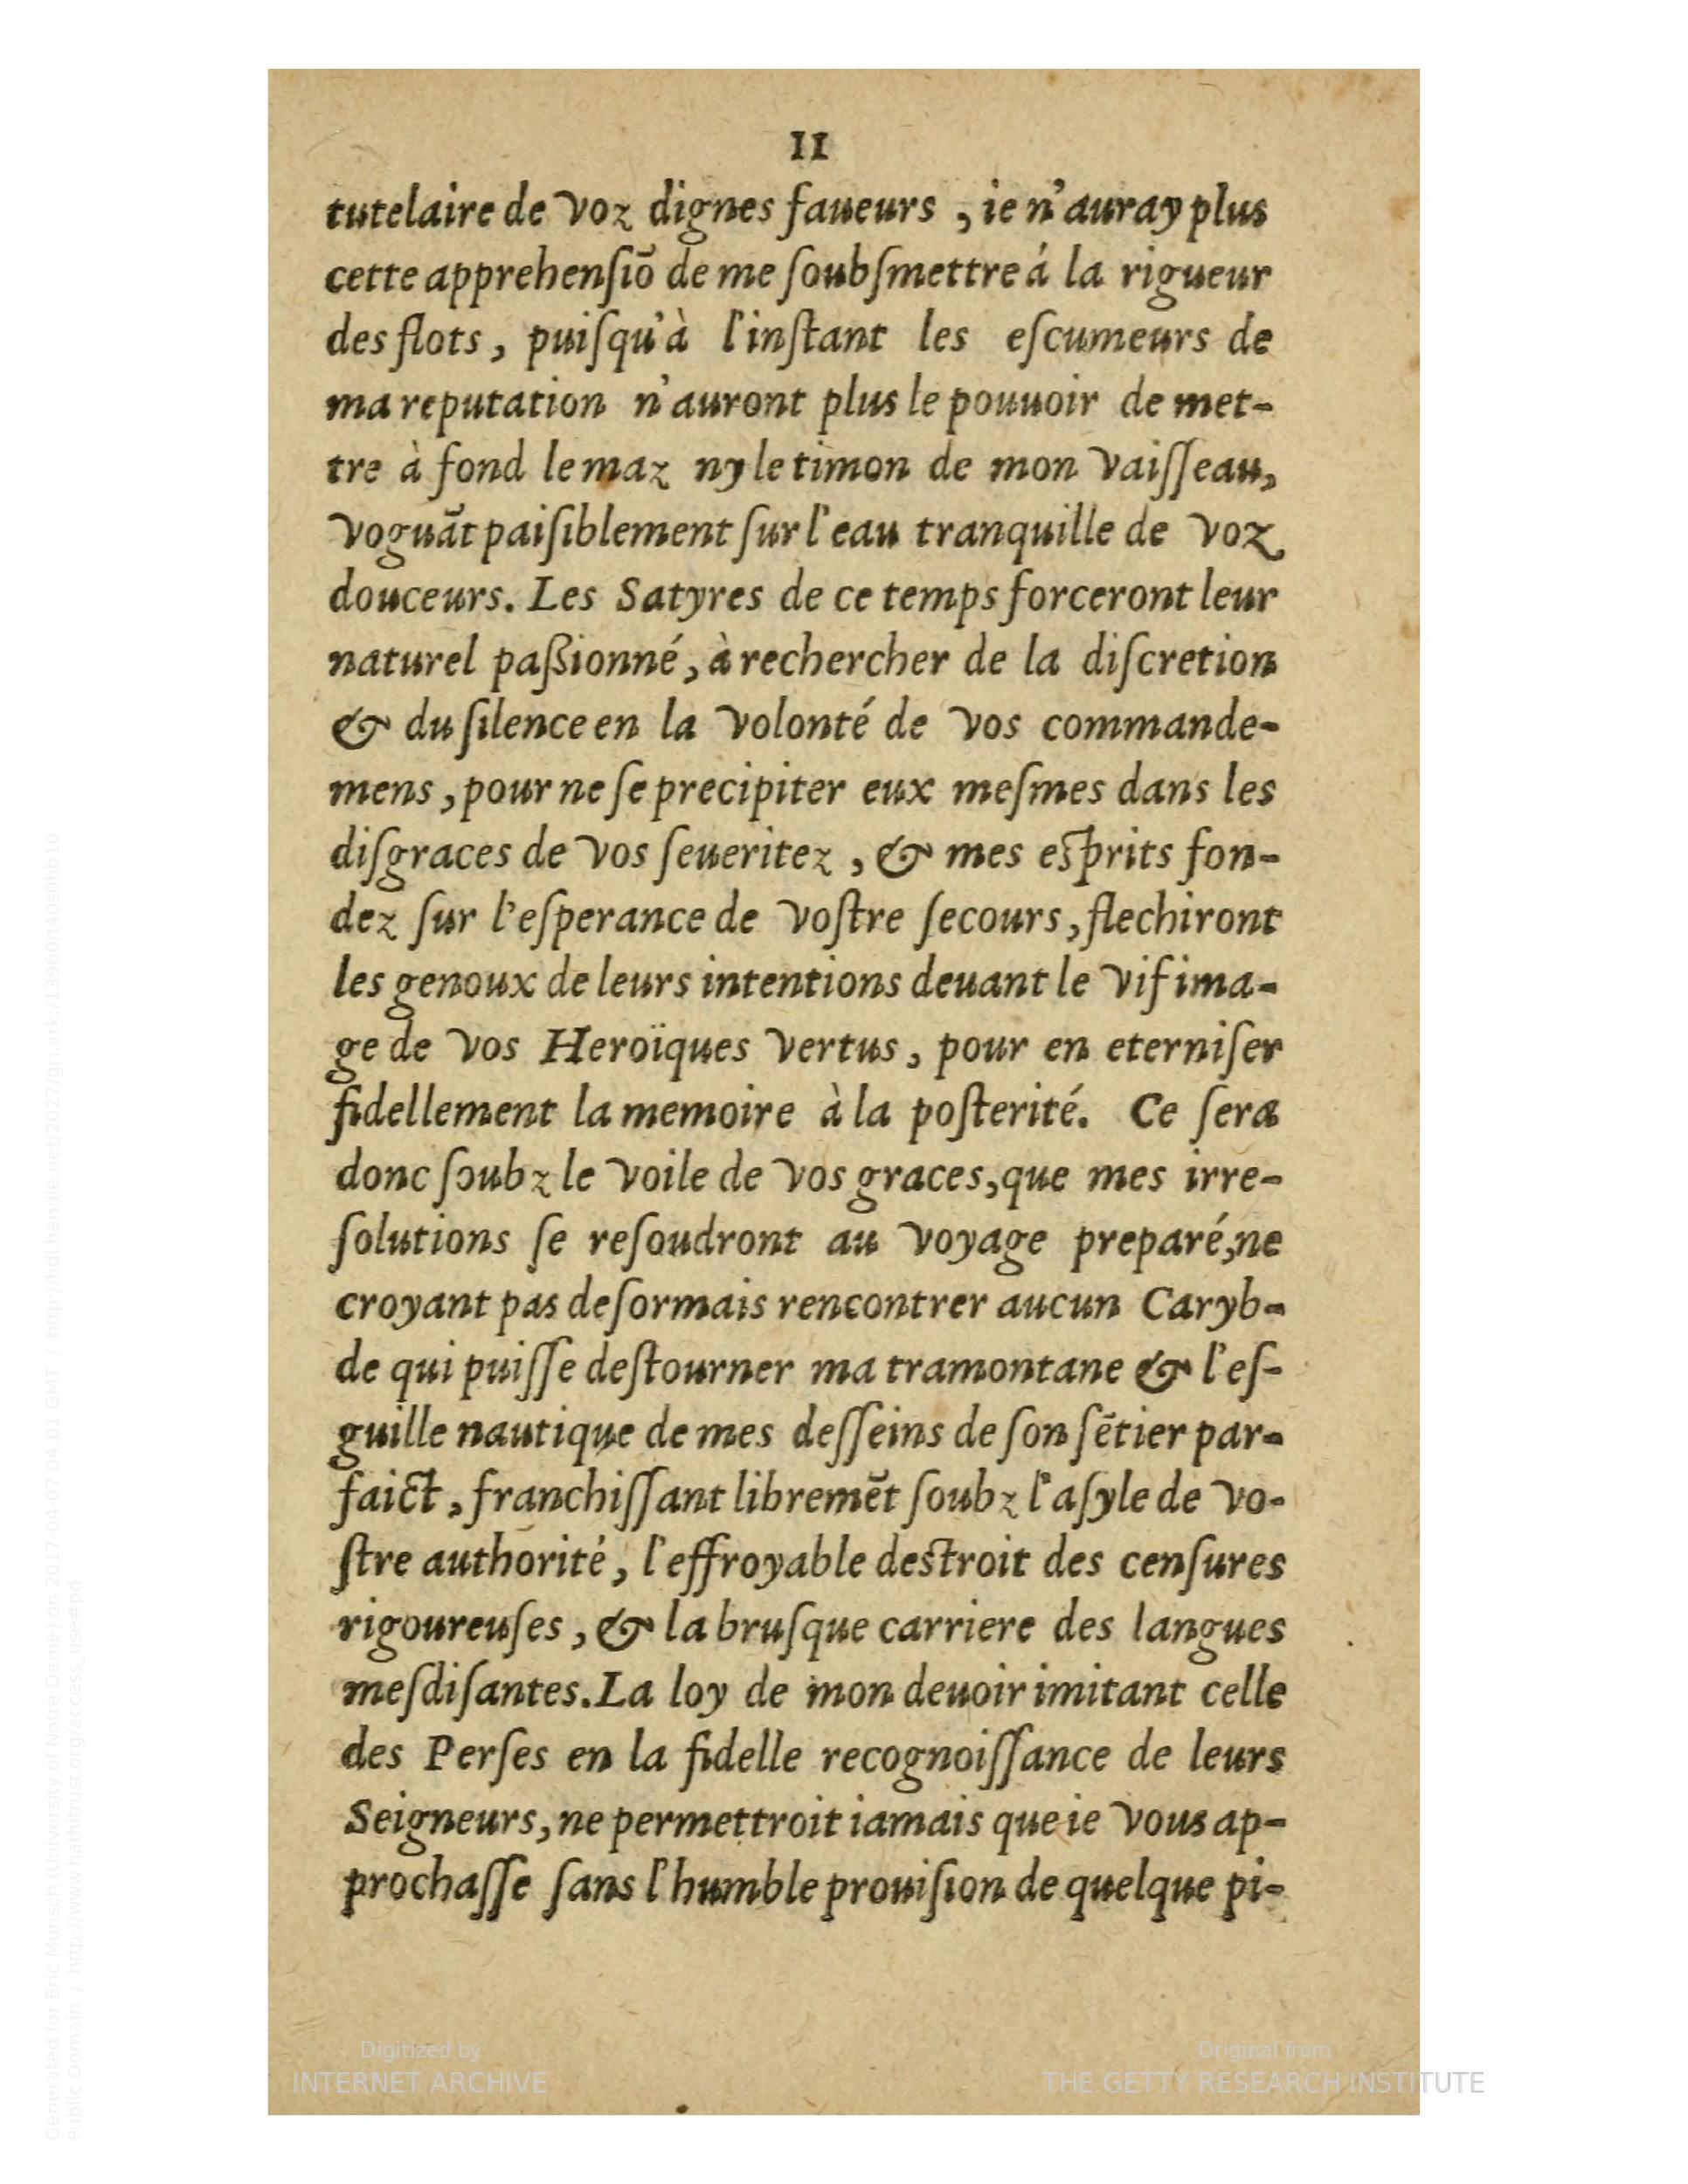 11
tutelaire de voz dignes faueurs , ie n'auray plus
cette apprehenſiõ de me ſoubſmettre á la rigueur
des flots , puiſqu'à l'inſtant les eſcumeurs de
ma reputation n'auront plus le pouuoir de met-
tre à fond le maz ny le timon de mon vaiſſeau,
voguãt paiſiblement ſur l'eau tranquille de voz
douceurs. Les Satyres de ce temps forceront leur
naturel paßionné, à rechercher de la diſcretion
& du ſilence en la volonté de vos commande-
mens , pour ne ſe precipiter eux meſmes dans les
diſgraces de vos ſeueritez , & mes eſprits fon-
dez ſur l'eſperance de voſtre ſecours, flechiront
les genoux de leurs intentions deuant le vif ima-
ge de vos Heroïques vertus, pour en eterniſer
fidellement la memoire à la poſterité. Ce ſera
donc ſoubz le voile de vos graces, que mes irre-
ſolutions ſe reſoudront au voyage preparé, ne
croyant pas deſormais rencontrer aucun Caryb-
de qui puiſſe deſtourner ma tramontane & l'eſ-
guille nautique de mes deſſeins de ſon ſẽtier par-
faict, franchiſſant libremẽt ſoubz l'aſyle de vo-
ſtre authorité, l'effroyable deſtroit des cenſures
rigoureuſes , & la bruſque carriere des langues
meſdiſantes. La loy de mon deuoir imitant celle
des Perſes en la fidelle recognoiſſance de leurs
Seigneurs, ne permettroit iamais que ie vous ap-
prochaſſe ſans l'humble prouiſion de quelque pi-
Digitized by
INTERNET ARCHIVE
Original from
THE GETTY RESEARCH INSTITUTE